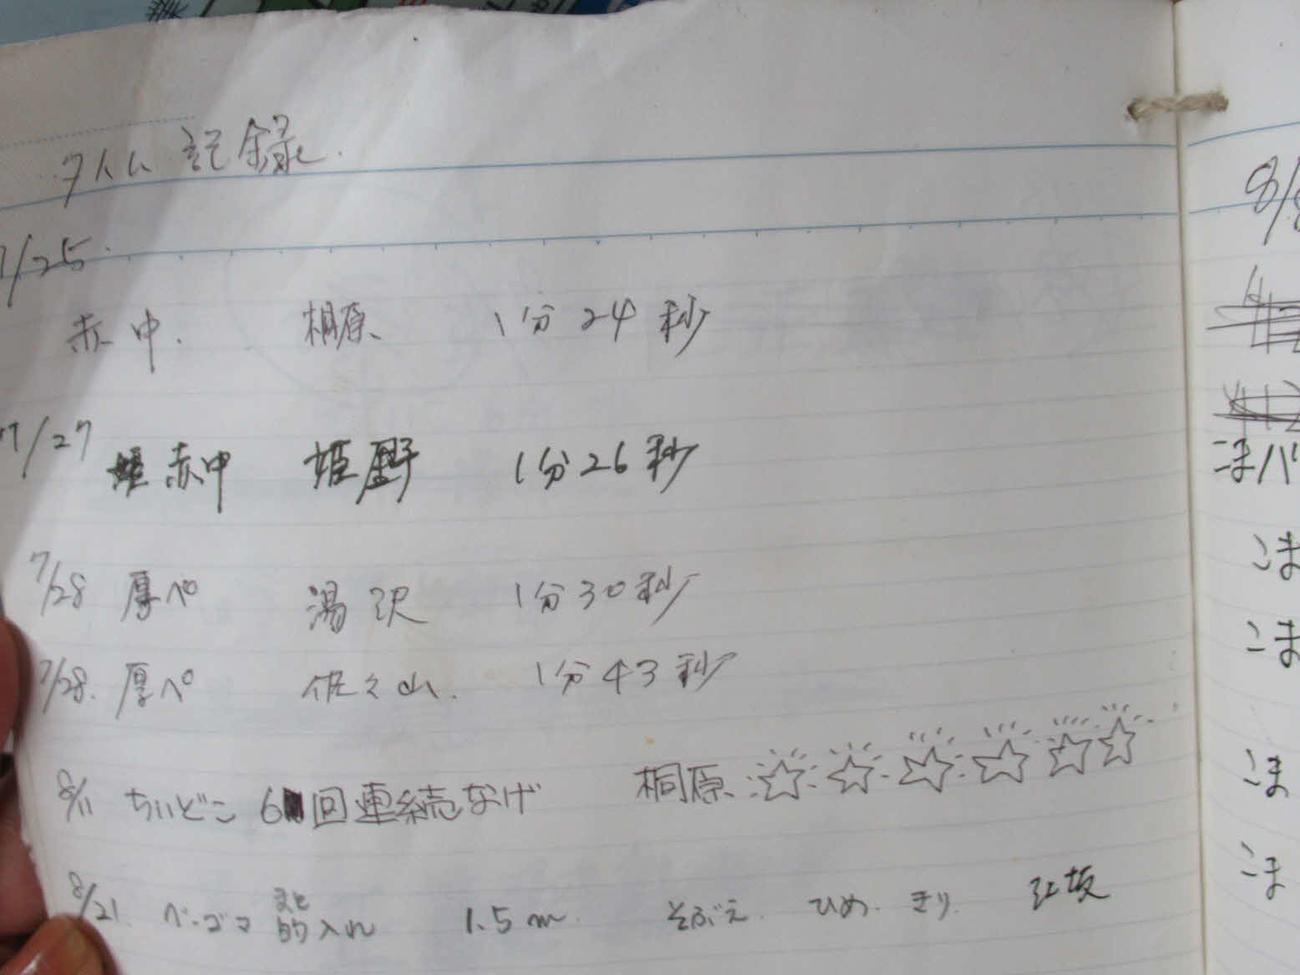 タイム記録.
7/25.
赤中. 桐原 1分24秒
7/27 赤中 姫野 1分26秒
7/28 厚ペ 湯沢 1分30秒
7/28. 厚ペ 佐々山. 1分43秒
8/11 ちいどこ 6回連続なげ 桐原 ☆☆☆☆☆☆
まと
8/21. ベーゴマ 的入れ 1.5m. そぶえ. ひめ. きり. 江坂
8/8
こまバ
こま
こま
こま
こま